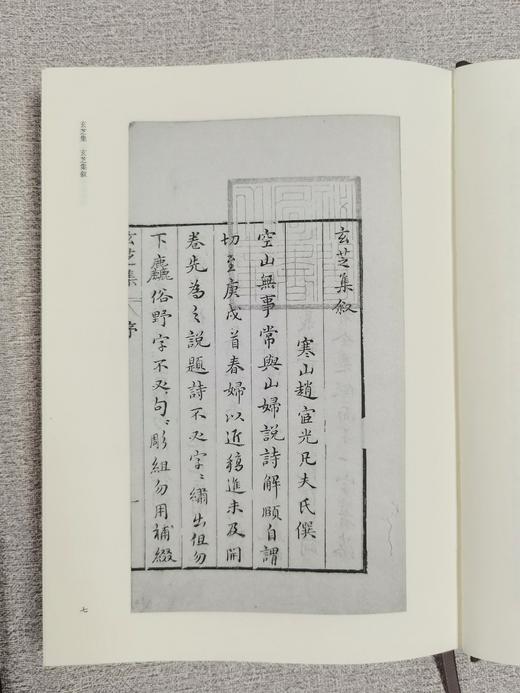 玄芝集 玄芝集叙
玄芝集叙
寒山趙宧光凡夫氏僎
空山無事常與山婦說詩解頤自謂
切至庚戌首春婦以近稿進未及開
卷先為之說題詩不又字〻繡出但勿
下麤俗野字不又句〻彫組勿用補綴
玄芝集
序
一
七